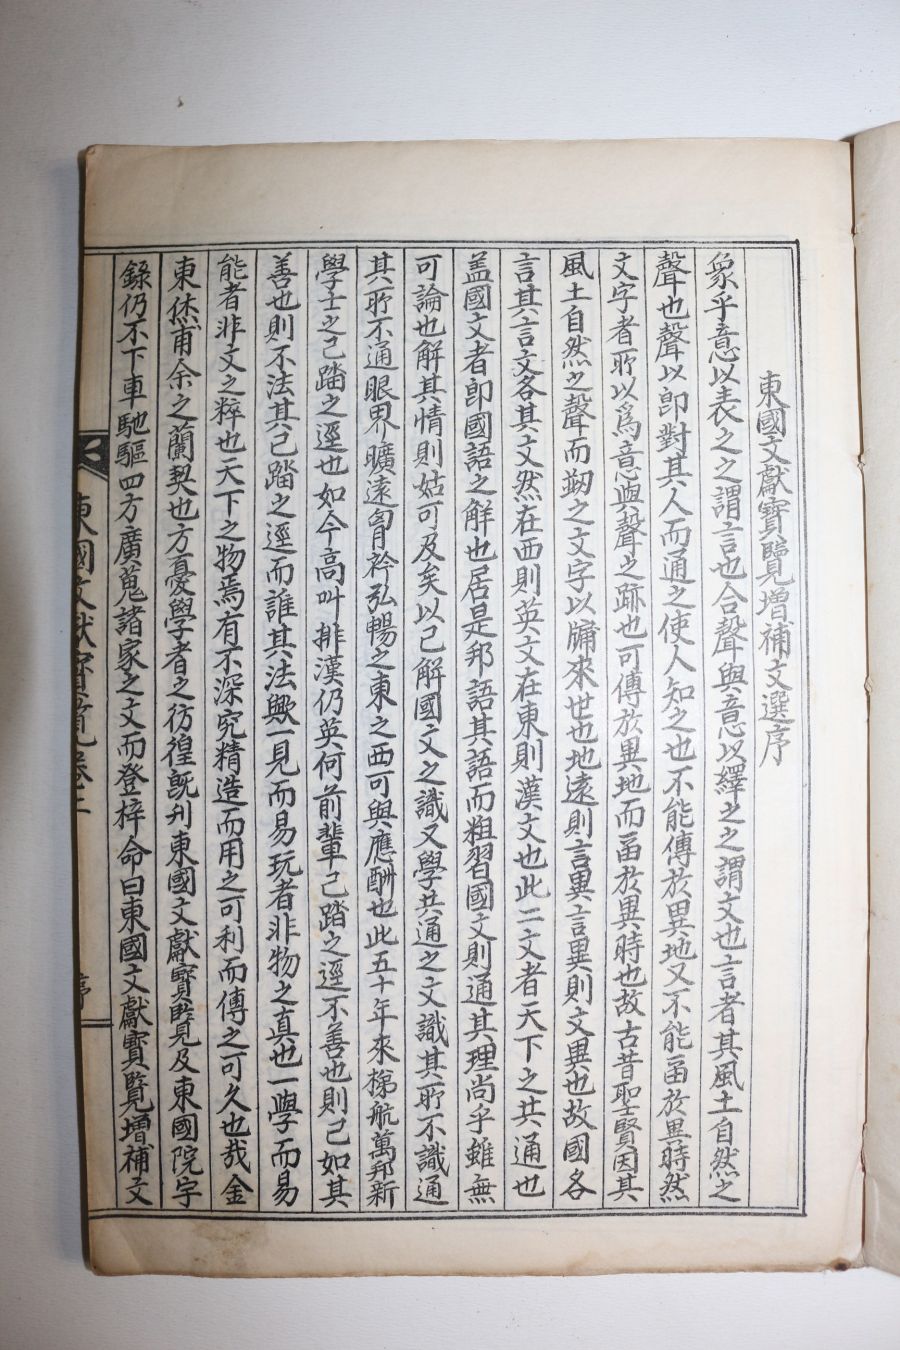 東國文獻寶覽增補文選序
象乎意以表之之謂言也合聲與意以繹之之謂文也言者其風土自然之
聲也聲以卽對其人而通之使人知之也不能傳於異地又不能畱於異時然
文字者所以爲意與聲之跡也可傳於異地而畱於異時也故古昔聖賢因其
風土自然之聲而刱之文字以牖來世也地遠則言異言異則文異也故國各
言其言文各其文然在西則英文在東則漢文也此二文者天下之共通也
盖國文者卽國語之解也居是邦語其語而粗習國文則通其理尚乎雖無
可論也解其情則姑可及矣以已解國文之識又學共通之文識其所不識通
其所不通眼界曠遠胷衿弘暢之東之西可與應酬也此五十年來梯航萬邦新
學士之已踏之逕也如今高叫排漢仍英何前輩已踏之逕不善也則已如其
善也則不法其已踏之逕而誰其法歟一見而易玩者非物之真也一學而易
能者非文之粹也天下之物焉有不深究精造而用之可利而傳之可久也哉金
東烋甫余之蘭契也方憂學者之彷徨旣刋東國文獻寶覽及東國院宇
錄仍不下車馳驅四方廣蒐諸家之文而登梓命曰東國文獻寶覽增補文
東國文獻寶覽卷二 序